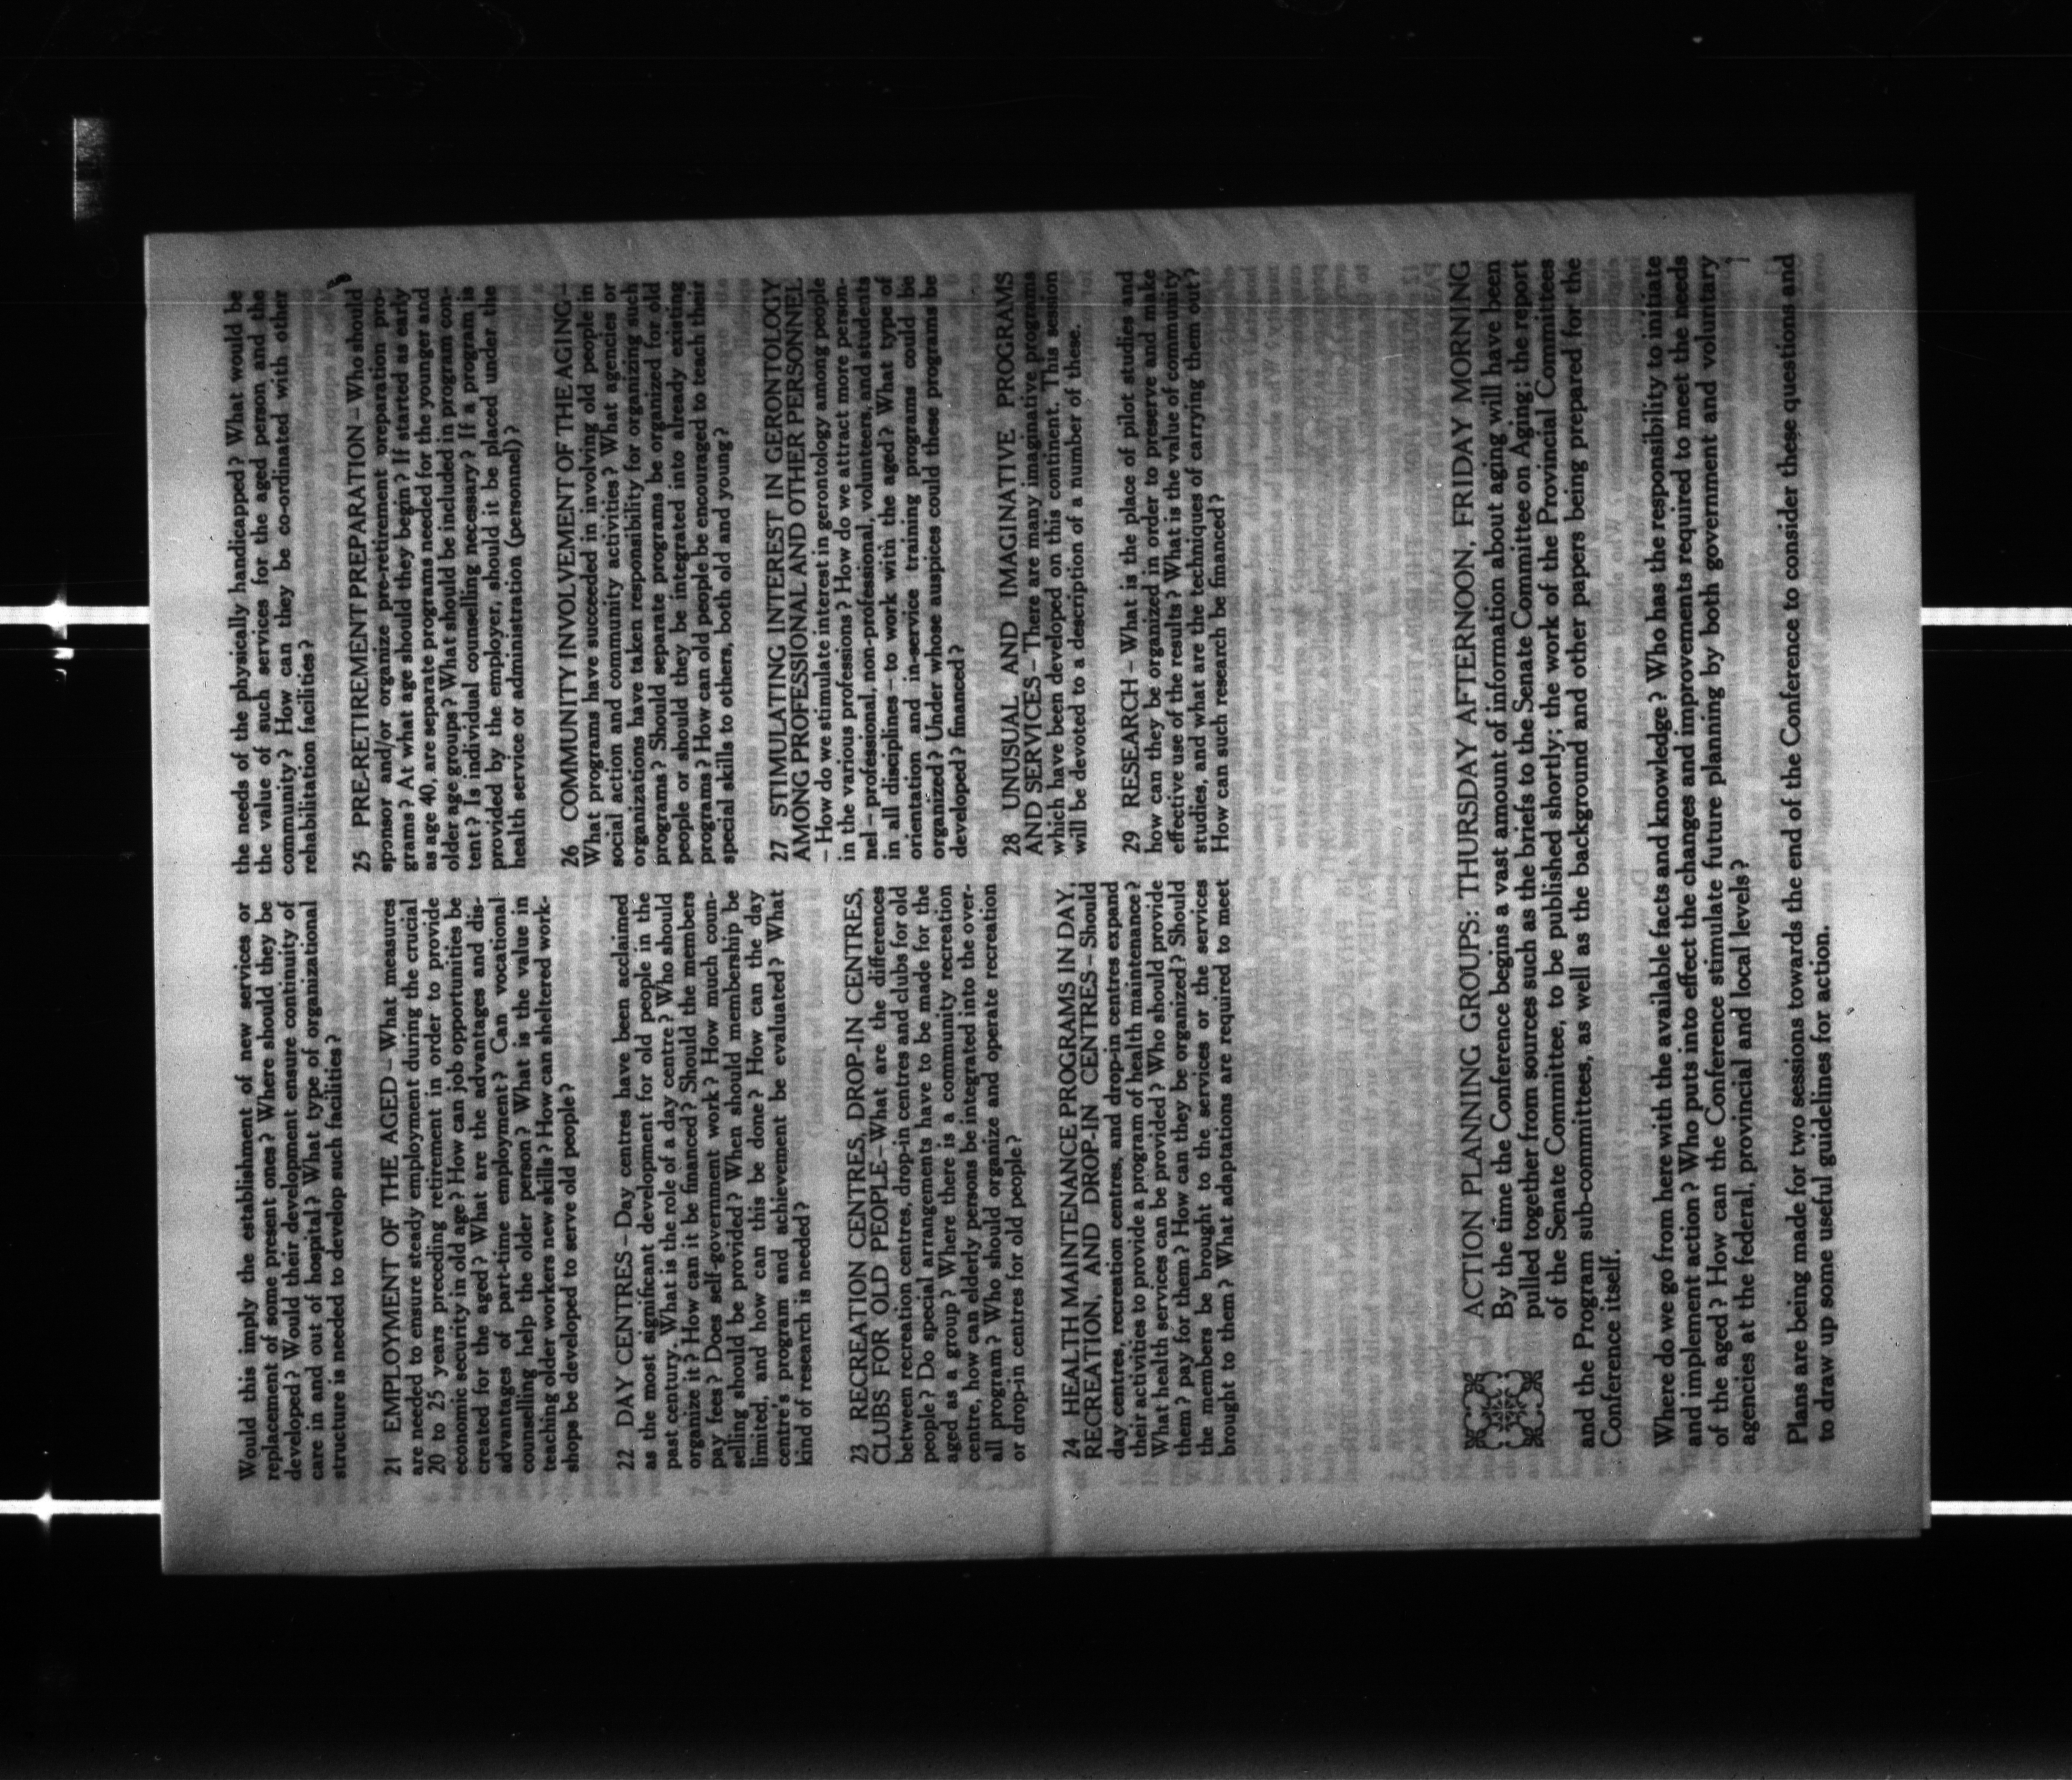 Would this imply the establishment of new services or
replacement of some present ones? Where should they be
developed? Would their development ensure continuity of
care in and out of hospital? What type of organizational
structure is needed to develop such facilities?
21 EMPLOYMENT OF THE AGED – What measures
are needed to ensure steady employment during the crucial
20 to 25 years preceding retirement in order to provide
economic security in old age? How can job opportunities be
created for the aged? What are the advantages and dis-
advantages of part-time employment? Can vocational
counselling help the older person? What is the value in
teaching older workers new skills? How can sheltered work-
shops be developed to serve old people?
22 DAY CENTRES – Day centres have been acclaimed
as the most significant development for old people in the
past century. What is the role of a day centre? Who should
organize it? How can it be financed? Should the members
pay fees? Does self-government work? How much coun-
selling should be provided? When should membership be
limited, and how can this be done? How can the day
centre's program and achievement be evaluated? What
kind of research is needed?
23 RECREATION CENTRES, DROP-IN CENTRES,
CLUBS FOR OLD PEOPLE – What are the differences
between recreation centres, drop-in centres and clubs for old
people? Do special arrangements have to be made for the
aged as a group? Where there is a community recreation
centre, how can elderly persons be integrated into the over-
all program? Who should organize and operate recreation
or drop-in centres for old people?
24 HEALTH MAINTENANCE PROGRAMS IN DAY,
RECREATION, AND DROP-IN CENTRES – Should
day centres, recreation centres, and drop-in centres expand
their activities to provide a program of health maintenance?
What health services can be provided? Who should provide
them? pay for them? How can they be organized? Should
the members be brought to the services or the services
brought to them? What adaptations are required to meet
the needs of the physically handicapped? What would be
the value of such services for the aged person and the
community? How can they be co-ordinated with other
rehabilitation facilities?
25 PRE-RETIREMENT PREPARATION – Who should
sponsor and/or organize pre-retirement preparation pro-
grams? At what age should they begin? If started as early
as age 40, are separate programs needed for the younger and
older age groups? What should be included in program con-
tent? Is individual counselling necessary? If a program is
provided by the employer, should it be placed under the
health service or administration (personnel)?
26 COMMUNITY INVOLVEMENT OF THE AGING –
What programs have succeeded in involving old people in
social action and community activities? What agencies or
organizations have taken responsibility for organizing such
programs? Should separate programs be organized for old
people or should they be integrated into already existing
programs? How can old people be encouraged to teach their
special skills to others, both old and young?
27 STIMULATING INTEREST IN GERONTOLOGY
AMONG PROFESSIONAL AND OTHER PERSONNEL
– How do we stimulate interest in gerontology among people
in the various professions? How do we attract more person-
nel – professional, non-professional, volunteers, and students
in all disciplines – to work with the aged? What type of
orientation and in-service training programs could be
organized? Under whose auspices could these programs be
developed? financed?
28 UNUSUAL AND IMAGINATIVE PROGRAMS
AND SERVICES – There are many imaginative programs
which have been developed on this continent. This session
will be devoted to a description of a number of these.
29 RESEARCH – What is the place of pilot studies and
how can they be organized in order to preserve and make
effective use of the results? What is the value of community
studies, and what are the techniques of carrying them out?
How can such research be financed?
ACTION PLANNING GROUPS: THURSDAY AFTERNOON, FRIDAY MORNING
By the time the Conference begins a vast amount of information about aging will have been
pulled together from sources such as the briefs to the Senate Committee on Aging; the report
of the Senate Committee, to be published shortly; the work of the Provincial Committees
and the Program sub-committees, as well as the background and other papers being prepared for the
Conference itself.
Where do we go from here with the available facts and knowledge? Who has the responsibility to initiate
and implement action? Who puts into effect the changes and improvements required to meet the needs
of the aged? How can the Conference stimulate future planning by both government and voluntary
agencies at the federal, provincial and local levels?
Plans are being made for two sessions towards the end of the Conference to consider these questions and
to draw up some useful guidelines for action.